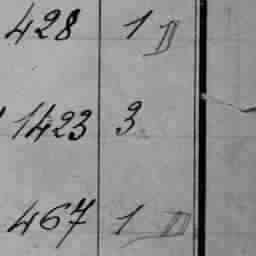 428 1 II
1423 3
467 1 II